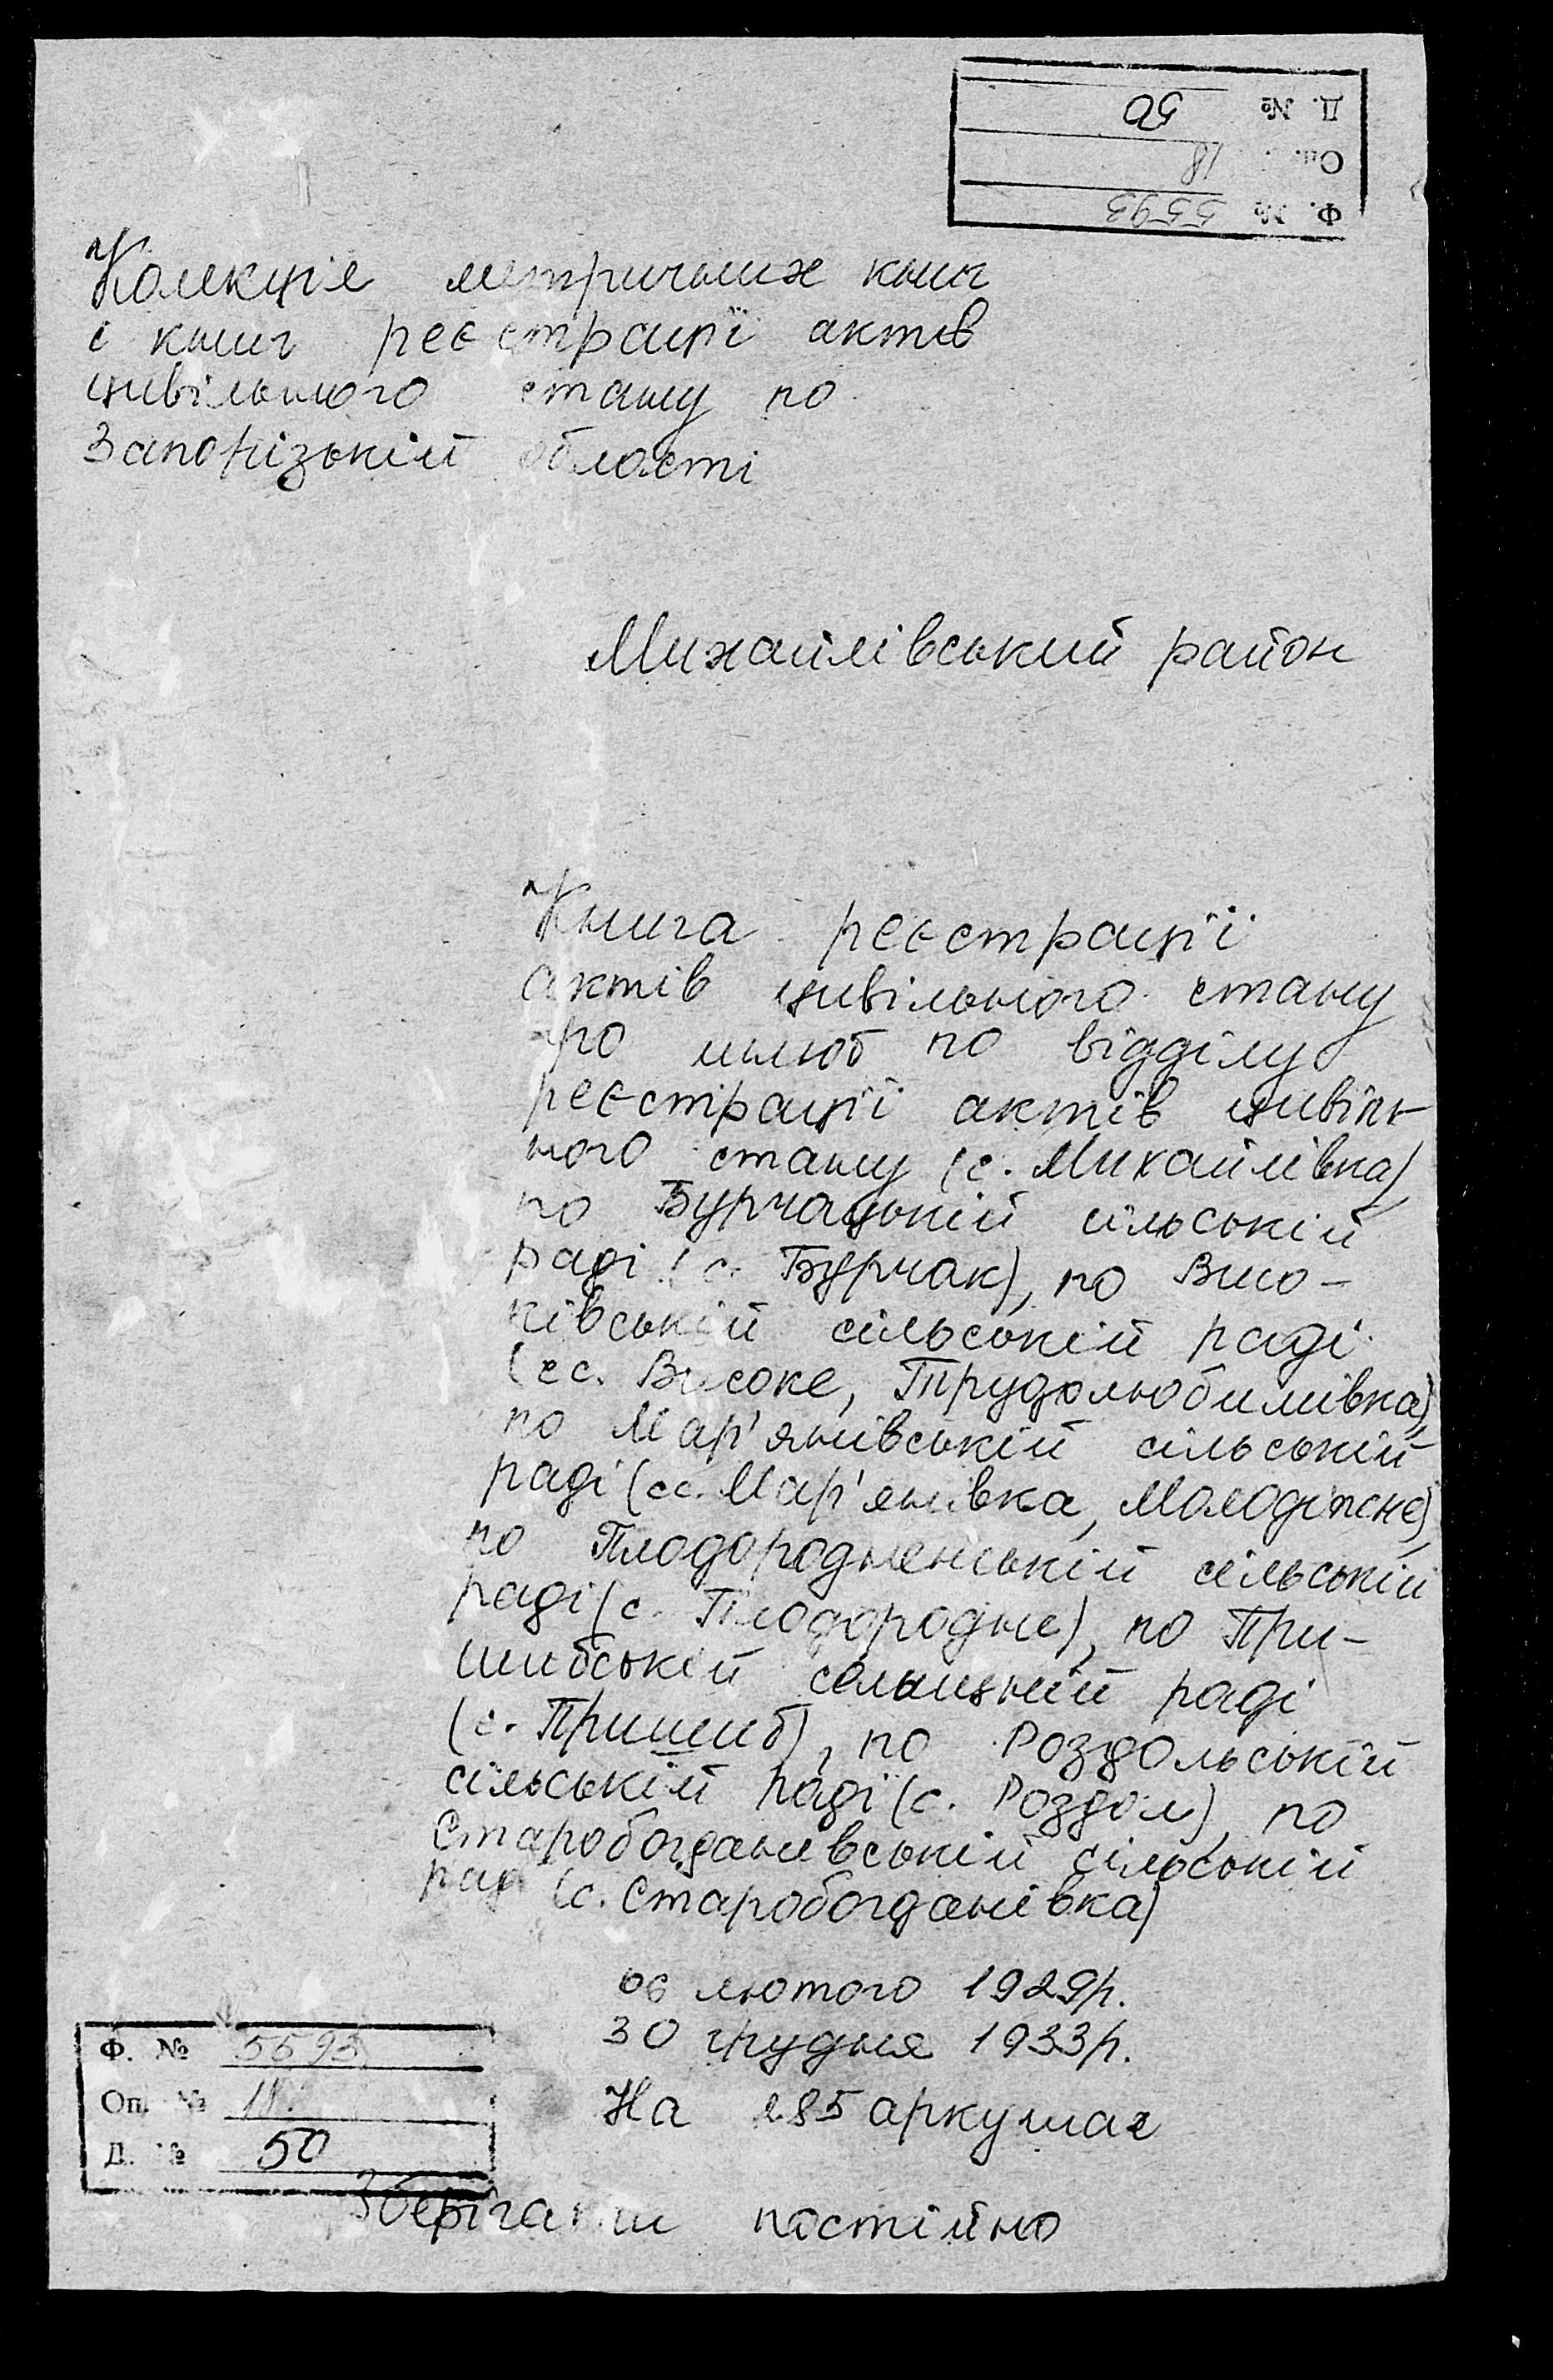 Д. № 50
Оп. 18
Ф. № 5593
Колекція метричних книг
і книг реєстрації актів
цивільного стану по
Запорізькій області
Михайлівський район
Книга реєстрації
актів цивільного стану
про шлюб по відділу
реєстрації актів цивіль-
ного стану (с. Михайлівка),
по Бурчацькій сільській
раді (с. Бурчак), по Висо-
ківській сільській раді
(сс. Високе, Трудолюбимівка),
по Мар'янівській сільській
раді (сс. Мар'янівка, Молодіжне),
по Плодородненській сільській
раді (с. Плодородне), по При-
шибській селищній раді
(с. Пришиб), по Роздольській
сільській раді (с. Роздол), по
Старобогданівській сільській
раді (с. Старобогданівка)
06 лютого 1929р.
30 грудня 1933р.
На 285 аркушах
Ф. № 5593
Оп. № 18
Д. № 50
Зберігати постійно